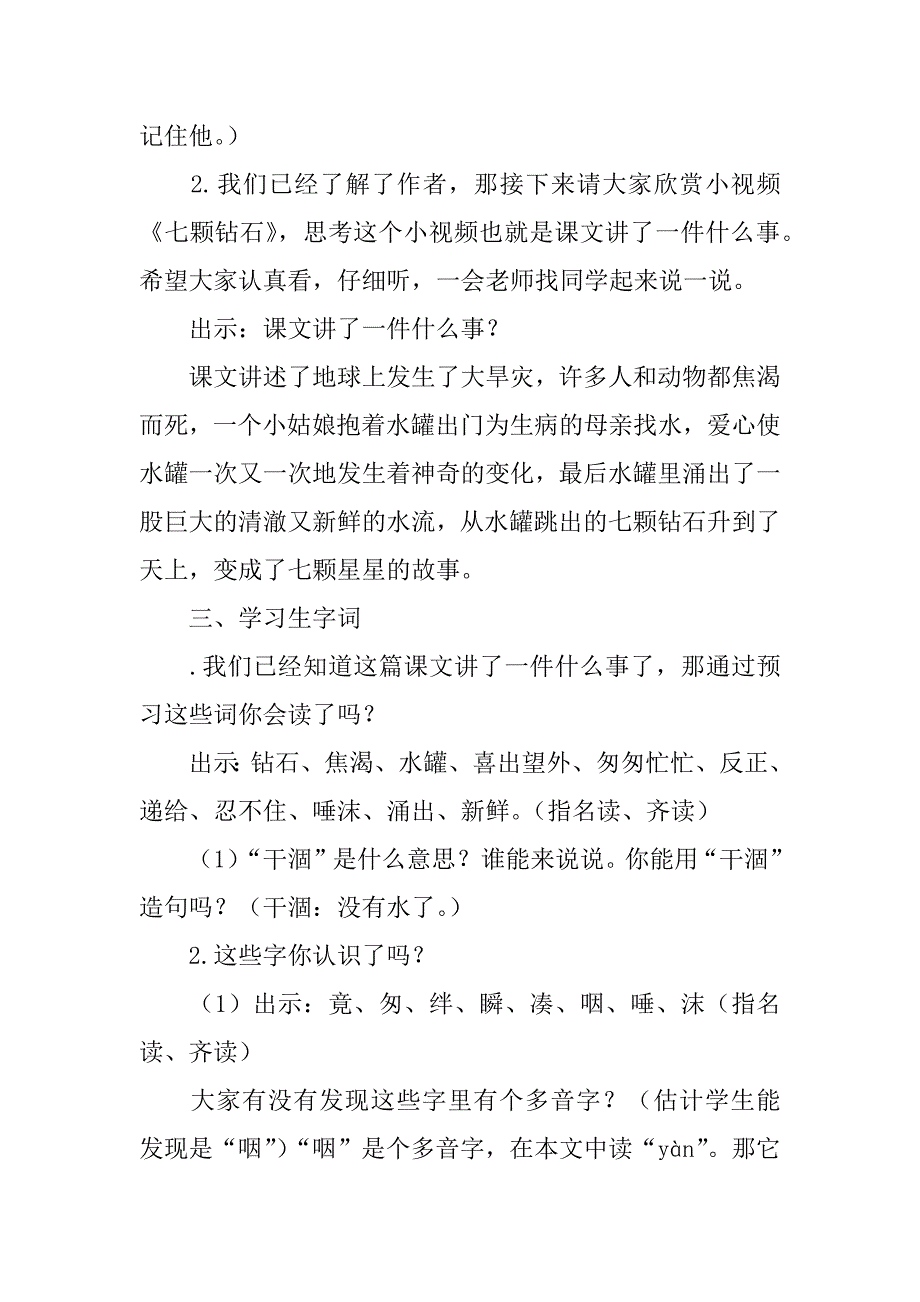 记住他。）
2.我们已经了解了作者，那接下来请大家欣赏小视频
《七颗钻石》，思考这个小视频也就是课文讲了一件什么事。
希望大家认真看，仔细听，一会老师找同学起来说一说。
出示：课文讲了一件什么事？
课文讲述了地球上发生了大旱灾，许多人和动物都焦渴
而死，一个小姑娘抱着水罐出门为生病的母亲找水，爱心使
水罐一次又一次地发生着神奇的变化，最后水罐里涌出了一
股巨大的清澈又新鲜的水流，从水罐跳出的七颗钻石升到了
天上，变成了七颗星星的故事。
三、学习生字词
.我们已经知道这篇课文讲了一件什么事了，那通过预
习这些词你会读了吗？
出示：钻石、焦渴、水罐、喜出望外、匆匆忙忙、反正、
递给、忍不住、唾沫、涌出、新鲜。（指名读、齐读）
（1）“干涸”是什么意思？谁能来说说。你能用“干涸”
造句吗？（干涸：没有水了。）
2.这些字你认识了吗？
（1）出示：竟、匆、绊、瞬、凑、咽、唾、沫（指名
读、齐读）
大家有没有发现这些字里有个多音字？（估计学生能
发现是“咽”）“咽”是个多音字，在本文中读“yàn”。那它